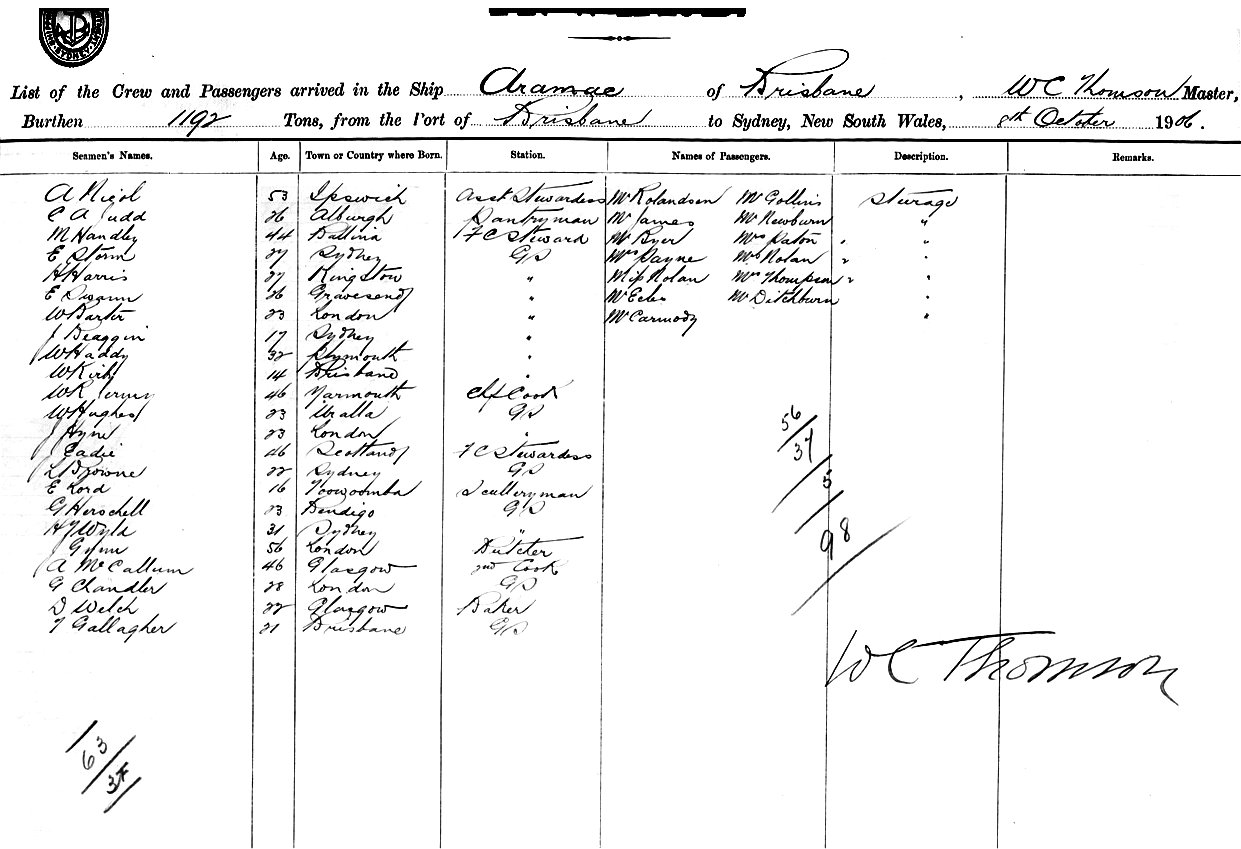 SYDNEY
List of the Crew and Passengers arrived in the Ship Aramac of Brisbane, W C Thomson Master,
Burthen 1192 Tons, from the Port of Brisbane to Sydney, New South Wales, 8th October 1906.
Seamen's Names. Age. Town or Country where Born. Station. Names of Passengers. Description. Remarks.
A Nicol 53 Ipswich Asst Stewardess Mr Rolandsen Mr Gollins Steerage
C A Judd 26 Alburgh Pantryman Mr James Mr Newburn "
M Handley 44 Ballina F C Steward Mr Ryer Mrs Paton " "
E Storm 27 Sydney GS Mrs Payne Mrs Nolan " "
H Harris 27 Kingston " Miss Nolan Mrs Thompson " "
E Swann 26 Gravesend " Mr Ecles Mr Ditchburn "
W Barter 23 London " Mr Carmody "
J 17 Sydney "
W Haddy 32 Plymouth "
W Kirk 14 Brisbane "
W R 46 Yarmouth Chf Cook
W Hughes 23 Uralla GS
J Hyne 23 London "
J Eadie 46 Scotland F C Stewardess
L Browne 22 Sydney GS
E Lord 16 Toowoomba Sculleryman
G Herschell 23 Bendigo GS
H J Wyld 31 Sydney "
J Gynn 56 London Butcher
A McCallum 46 Glasgow 2nd Cook
G Chandler 28 London GS
D Welch 22 Glasgow Baker
T Gallagher 21 Brisbane GS
56
37
5
98
W C Thomson
63
37